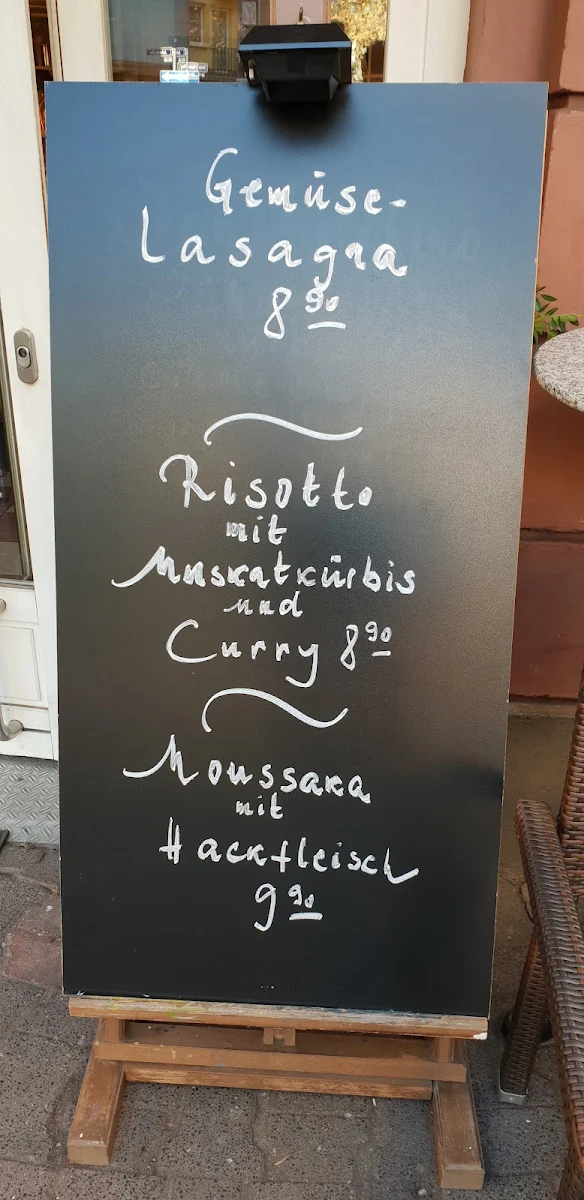 Gemüse-
Lasagna
8 90
Risotto
mit
Muskatkürbis
und
Curry 8 90
Moussaka
mit
Hackfleisch
9 90